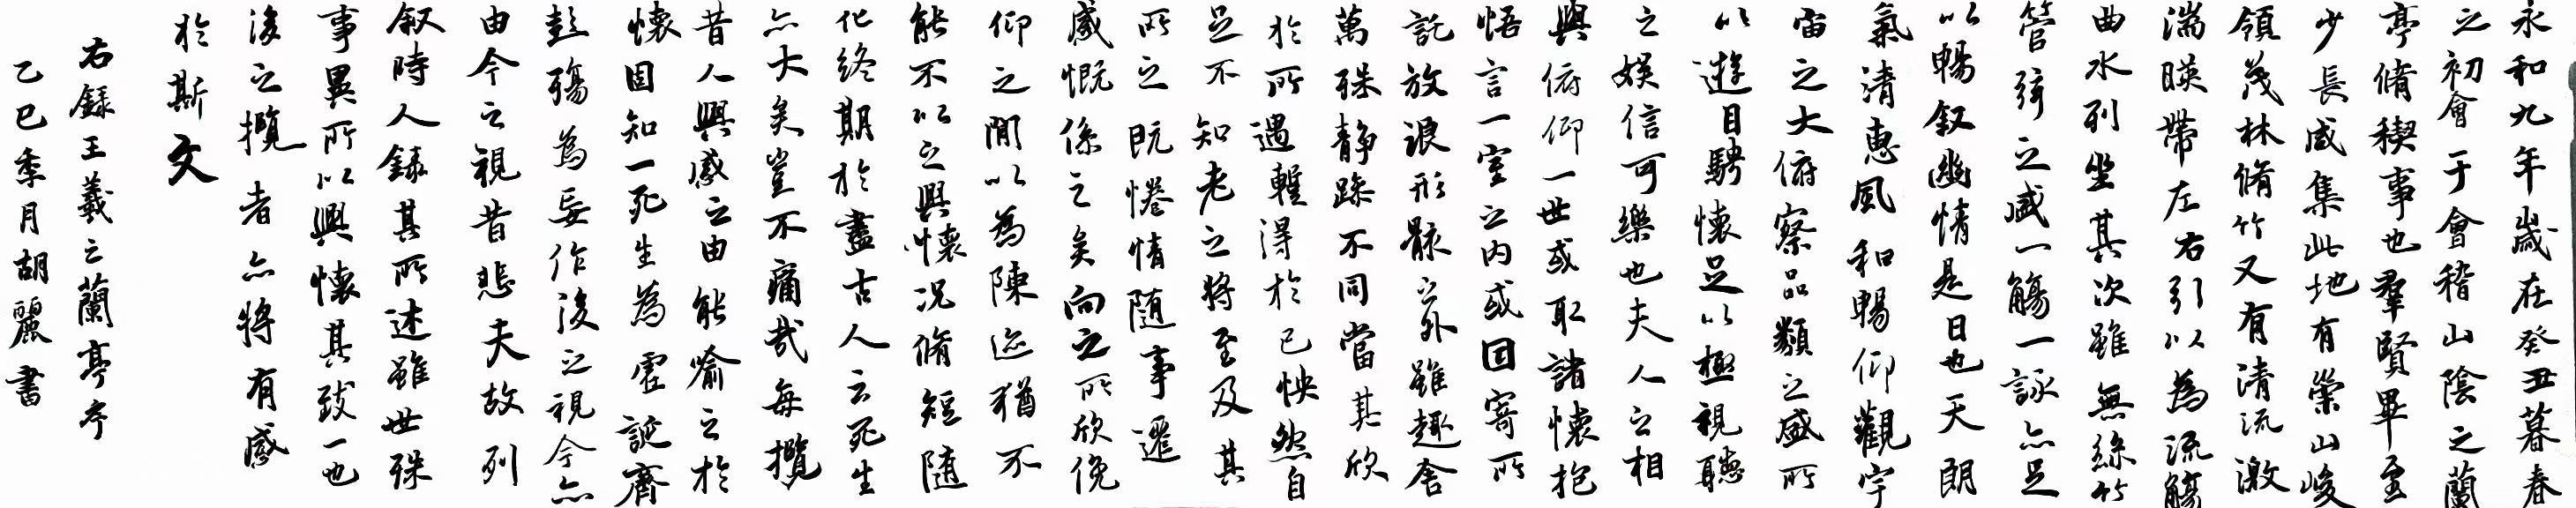 永和九年歲在癸丑暮春
之初會于會稽山陰之蘭
亭脩稧事也羣賢畢至
少長咸集此地有崇山峻
領茂林脩竹又有清流激
湍暎帶左右引以為流觴
曲水列坐其次雖無絲竹
管弦之盛一觴一詠亦足
以暢叙幽情是日也天朗
氣清惠風和暢仰觀宇
宙之大俯察品類之盛所
以遊目騁懷足以極視聽
之娛信可樂也夫人之相
與俯仰一世或取諸懷抱
悟言一室之内或因寄所
託放浪形骸之外雖趣舍
萬殊静躁不同當其欣
於所遇輕得於已怏然自
足不知老之將至及其
所之既惓情随事遷
感慨係之矣向之所欣俛
仰之閒以為陳迹猶不
能不以之興懷况脩短隨
化終期於盡古人云死生
亦大矣豈不痛哉每攬
昔人興感之由能喻之於
懷固知一死生為虛誕齊
彭殤為妄作後之視今亦
由今之視昔悲夫故列
叙時人錄其所述雖世殊
事異所以興懷其致一也
後之攬者亦將有感
於斯文
右錄王羲之蘭亭序
乙巳季月胡麗書